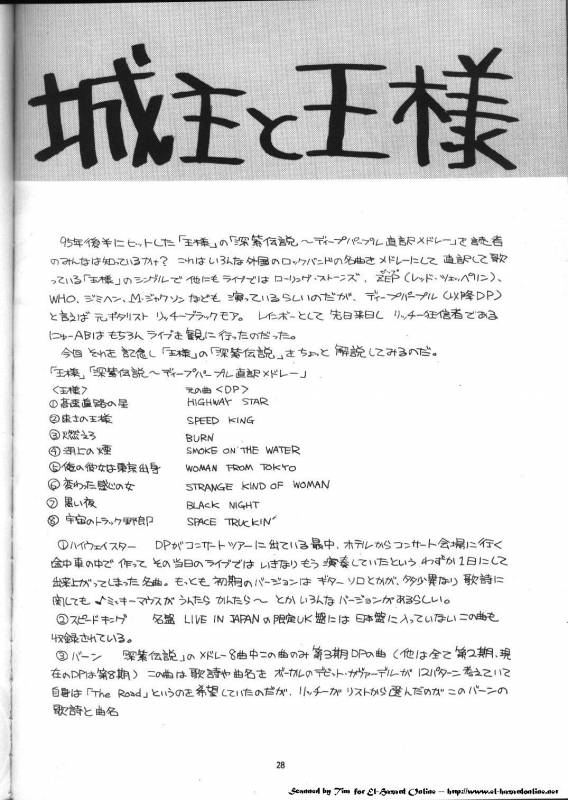 城主と王様
95年後半にヒットした「王様」の「深紫伝説〜ディープパープル直訳メドレー」を読者
のみんなは知っているかナ? これはいろんな外国のロックバンドの名曲をメドレーにして直訳して歌
っている「王様」のシングルで他にもライブではローリング・ストーンズ、ZEP(レッド・ツェッペリン)、
WHO、ジミヘン、M・ジャクソンなども演っているらしいのだが、ディープパープル(以降DP)
と言えば元ギタリスト リッチーブラックモア。レインボーとして先日来日し リッチー狂信者である
にゅーABはもちろんライブを観に行ったのだった。
今回それを記念し「王様」の「深紫伝説」をちょっと解説してみるのだ。
「王様」「深紫伝説〜ディープパープル直訳メドレー」
<王様> 元の曲<DP>
①高速道路の星 HIGHWAY STAR
②速さの王様 SPEED KING
③燃えろ BURN
④湖上の煙 SMOKE ON THE WATER
⑤俺の彼女は東京出身 WOMAN FROM TOKYO
⑥変わった感じの女 STRANGE KIND OF WOMAN
⑦黒い夜 BLACK NIGHT
⑧宇宙のトラック野郎 SPACE TRUCKIN'
①ハイウェイスター DPがコンサートツアーに出ている最中、ホテルからコンサート会場に行く
途中車の中で作って その当日のライブではいきなりもう演奏していたという わずか1日にして
出来上がってしまった名曲。もっとも初期のバージョンは ギターソロとかが、多少異なり 歌詩に
関しても ♪ミッキーマウスが うんたら かんたら〜 とか いろんなバージョンがあるらしい。
②スピードキング 名盤 LIVE IN JAPANの限定UK盤には 日本盤に入っていない この曲も
収録されている。
③バーン 「深紫伝説」のメドレー8曲中この曲のみ 第3期DPの曲(他は全て第2期、現
在のDPは第8期) この曲は歌詩や曲名を ボーカルのデビット・カヴァーデルが 12パターン考えていて
自身は「The Road」というのを希望していたのだが、リッチーがリストから選んだのが このバーンの
歌詩と曲名
28
Scanned by Tim for El-Hazard Online -- http://www.el-hazardonline.net